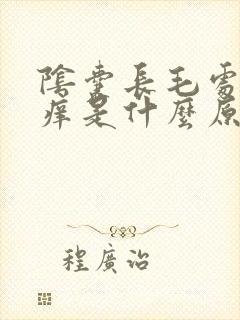 陰囊長毛處
癢是什麼原
程廣治